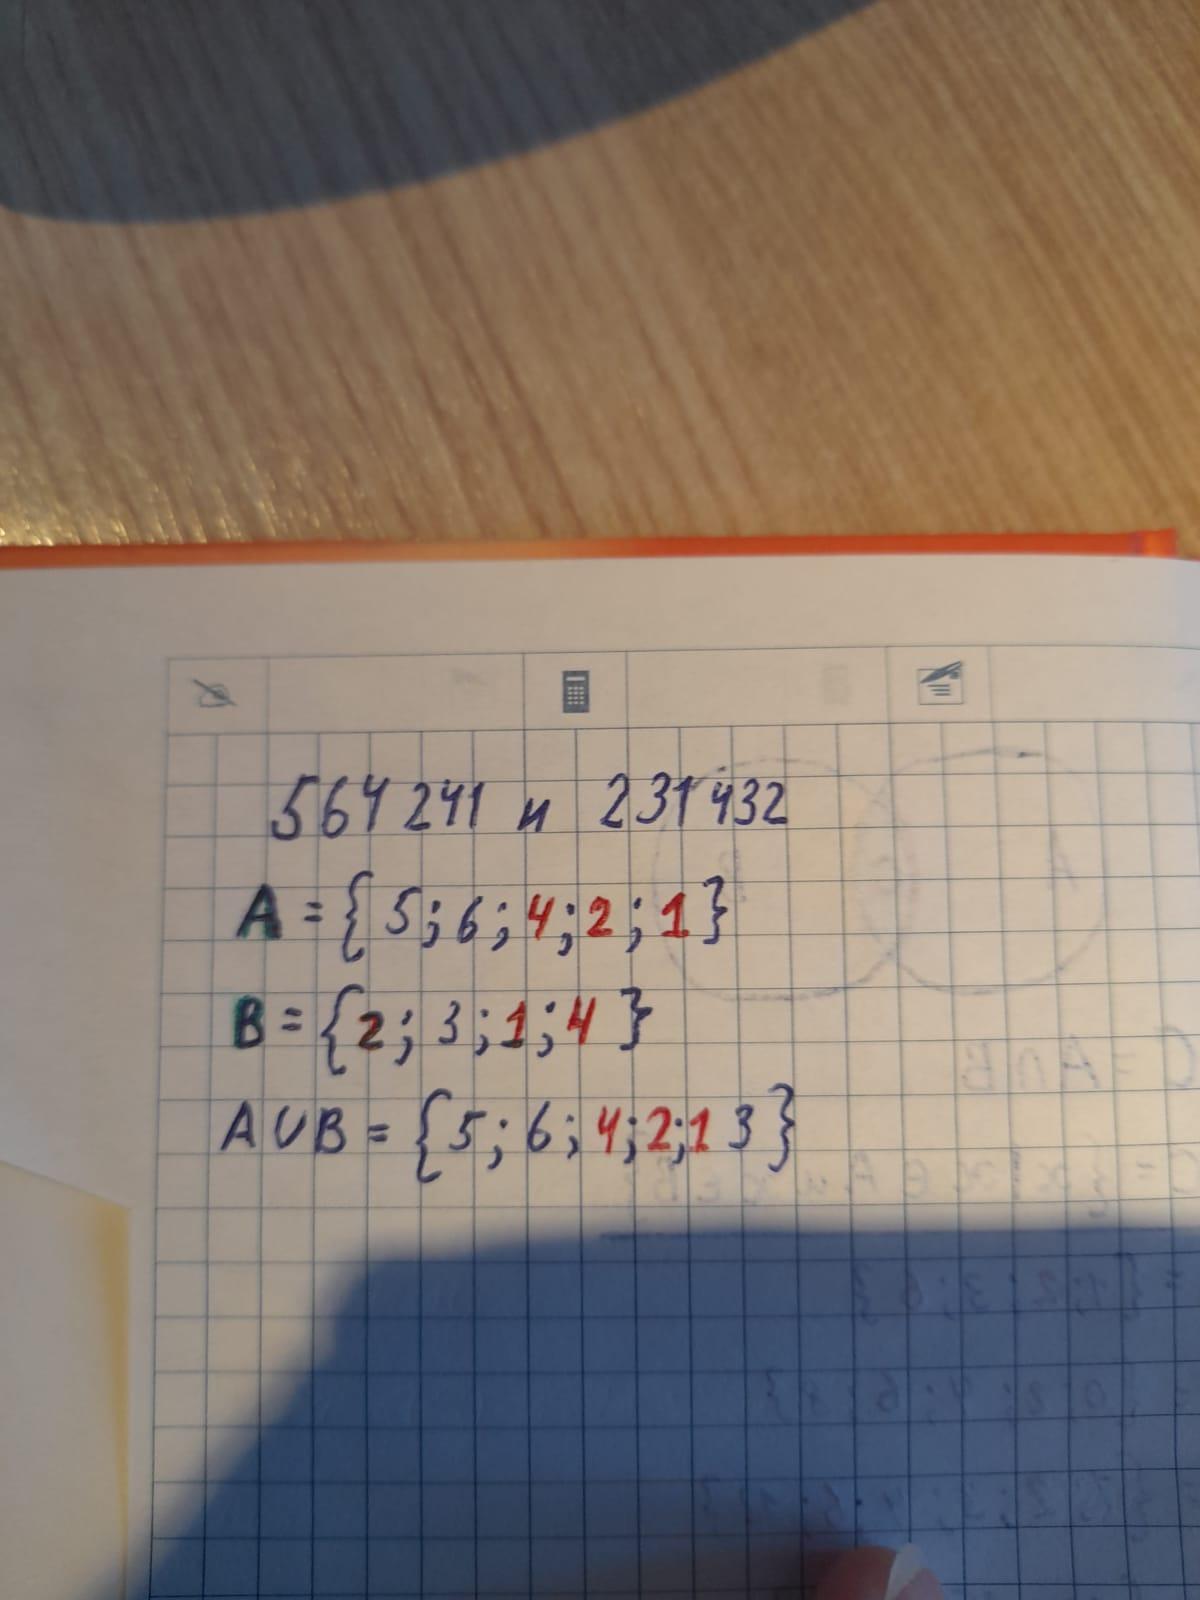 564241 и 231432
A = {5; 6; 4; 2; 1}
B = {2; 3; 1; 4}
A ∪ B = {5; 6; 4; 2; 1 3}